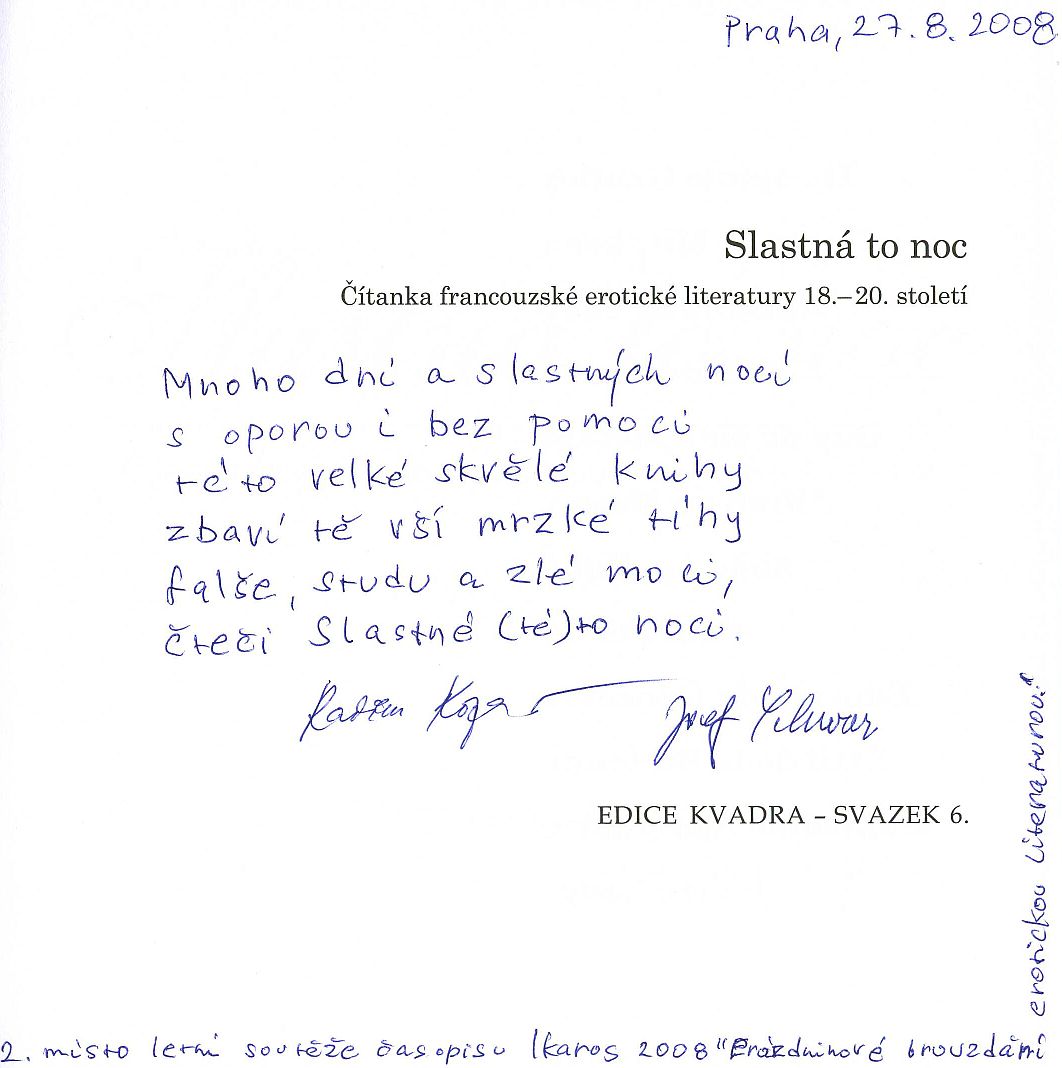 Praha, 27. 8. 2008
Slastná to noc
Čítanka francouzské erotické literatury 18.–20. století
Mnoho dní a slastných nocí
s oporou i bez pomoci
této velké skvělé knihy
zbaví tě vší mrzké tíhy
falše, studu a zlé moci,
čteči Slastné (té)to noci.
Radim Kop
Josef Schwarz
EDICE KVADRA – SVAZEK 6.
2. místo letní soutěže časopisu Ikaros 2008 "Prázdninové brouzdání
erotickou literaturou"